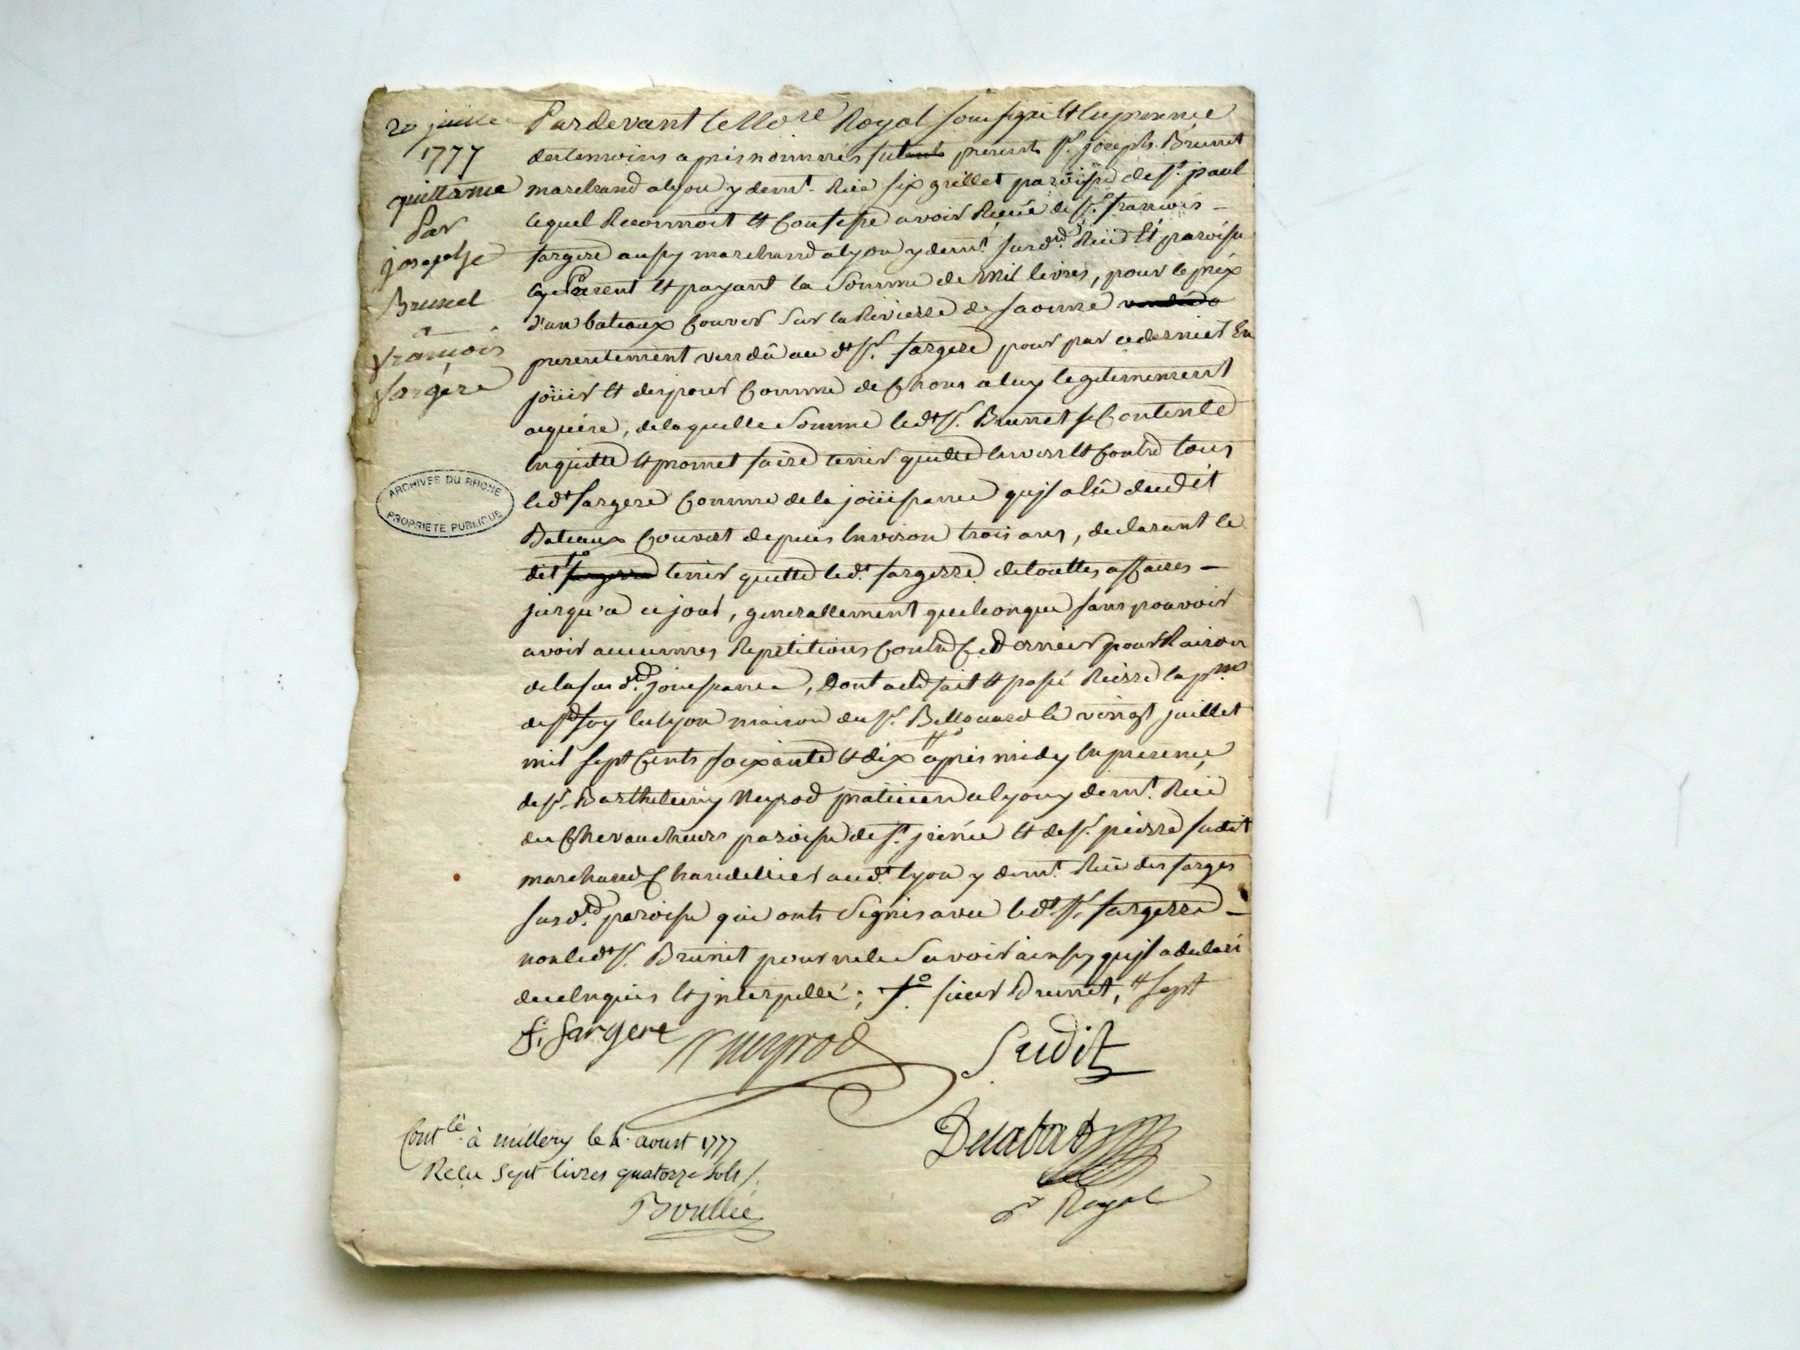 20 juillet
1777
quittance
Par
joseph
Brunet
a
françois
fargere
ARCHIVES DU RHONE
PROPRIETE PUBLIQUE
Pardevant le No.re Royal soussigné et en presence
des temoins apres nommés fut present Sr. joseph Brunet
marchand a lyon y demt. Rüe six grillet paroisse de St. paul
lequel Reconnoit et Confesse avoir Reçeu de Sr. francois
fargere aussy marchand a lyon y demt. susd. Rüe et paroisse
cy Present et payant la Somme de mil livres, pour le prix
d'un bateaux Couver sur la Rivierre de saonne
presentement vendû au dt Sr. fargere pour par ce dernier En
jöuir et disposer Comme de Chose a luy legitimement
aquise, de laquelle Somme ledt Sr. Brunet se Contente
En quitte et promet faire tenir quitte Envers et Contre tous
ledt fargere Comme de la joüissance qu'il a Eû dudit
Bateaux Couvert depuis Environ trois ans, declarant le
dit fo tenir quitte led. fargerre de touttes affaires
jusqu'a ce jour, generallement quelconque sans pouvoir
avoir aucunnes Repetitions Contre Ce Dernier pour Raison
de la susd. jouissance, Dont acte fait et passé
de Ste foy les lyon maison du Sr. le vingt juillet
mil sept Cents soixante et dix apres midy En presence
de Sr. Barthelemy Neyrod praticien a lyon y demt. Rüe
des Chevaucheurs paroisse de St. jrénée et de Sr. pierre sudit
marchand Chandellier aud. lyon y demt. Rüe des farges
susd. paroisse qui onts Signés avec ledt Sr. fargerre
non ledt Sr. Brunet pour ne le Savoir ainsy qu'il a declaré
de ce Enquis et jnterpellé; fo sieur Brunet, tt sept
f. fargere
Neyrod
Sudit
Delabat
Royal
Contlé. à millery le 2. aoust 1777
Reçu sept livres quatorze sols
Boullée